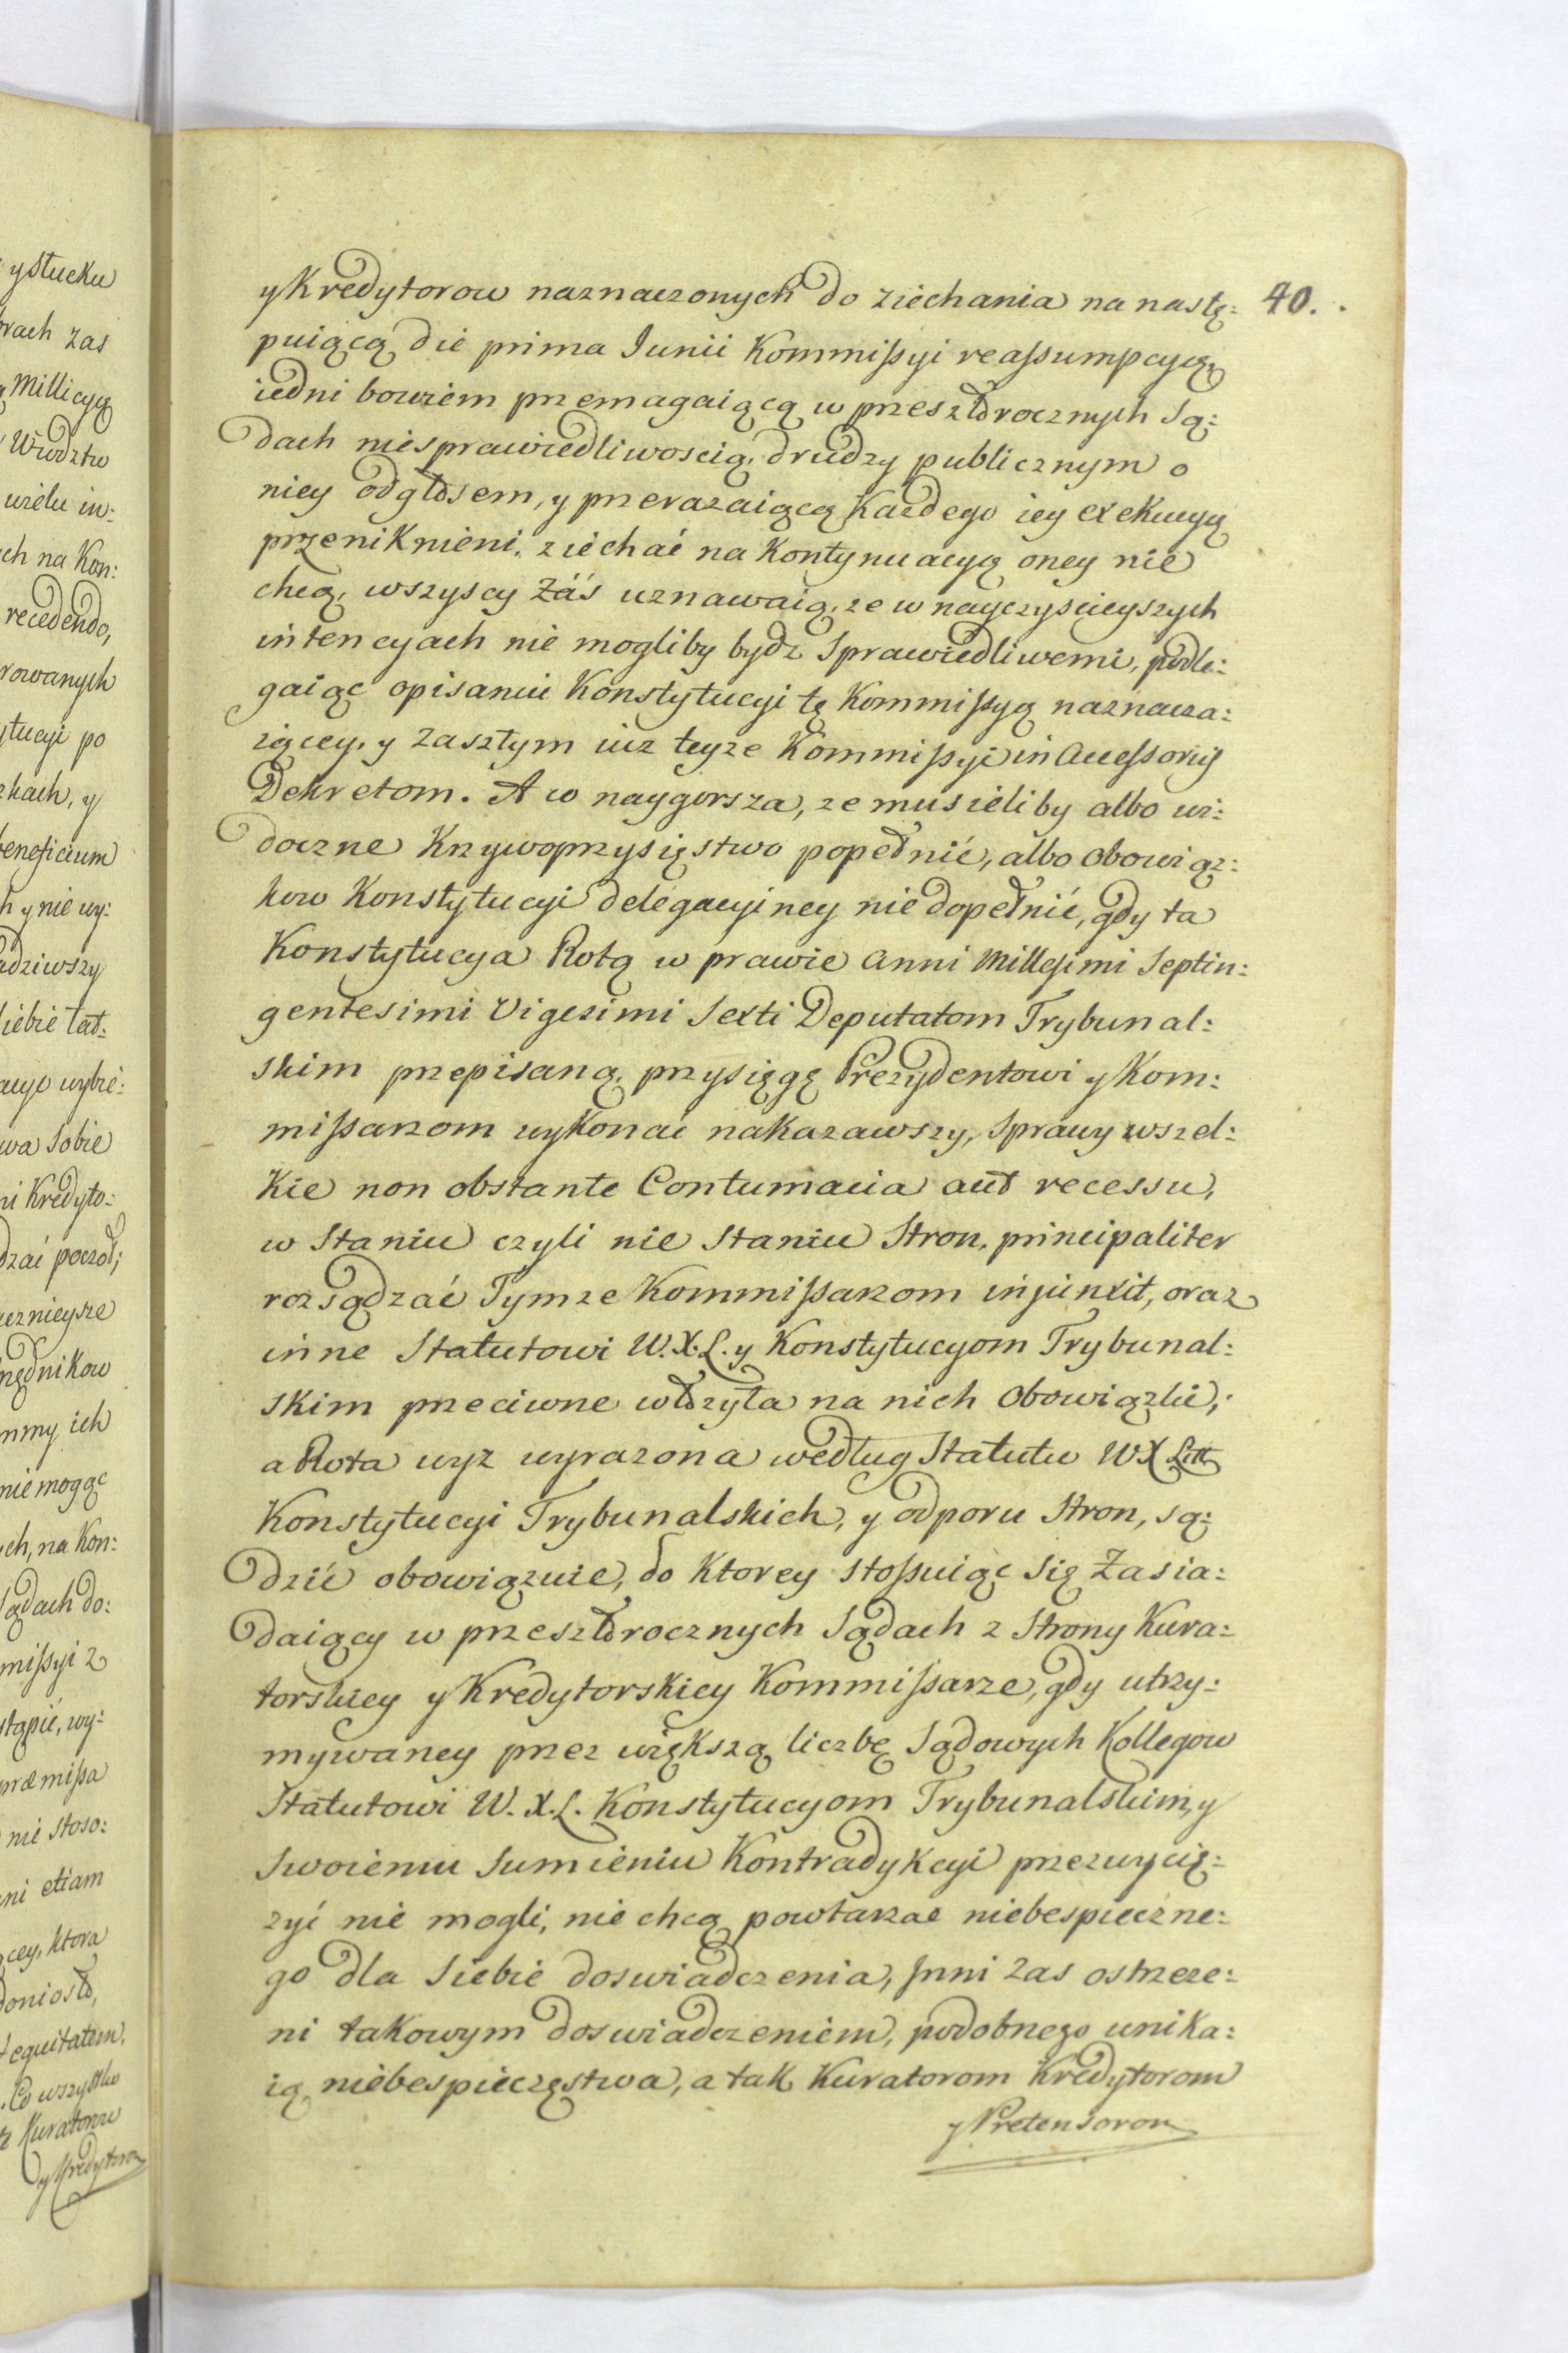 y Kredytorow naznaczonych do ziechania na nastę:
40.
puiącą die prima Junii Kommissyi reassumpcyą,
iedni bowiem przemagaiącą w przeszłorocznych Są:
dach niesprawiedliwoscią, drudzy publicznym o
niey odgłosem, y przerazaiącą Kazdego iey exekucyą
przeniknieni, ziechać na Kontynuacyą oney nie
chcą, wszyscy Záś uznawaią, ze w nayczyscieyszych
intencyach nie mogliby bydz Sprawiedliwemi, podle:
gaiąc opisaniu Konstytucyi tę Kommissyą naznacza:
iącey, y Zaszłym iuz teyze Kommissyi in Accessoriis
Dekretom. A co naygorsza, ze musieliby albo wi:
doczne Krzywoprzysięstwo popełnić, albo Obowiąz:
kow Konstytucyi delegacyiney nie dopełnić, gdy ta
Konstytucya Rotą w prawie Anni Millesimi Septin:
gentesimi Vigesimi Sexti Deputatom Trybunal:
skim przepisaną, przysięgę Prezydentowi y Kom:
missarzom wykonac nakazawszy, Sprawy wszel:
kie non obstante Contumacia aut recessu,
w Staniu czyli nie Staniu Stron, principaliter
rozsądzać Tymze Kommissarzom injunxit, oraz
inne Statutowi W. X. L. y Konstytucyom Trybunal:
skim przeciwne włozyła na nich Obowiązki,
a Rota wyz wyrazona według Statutu W X Litt
Konstytucyi Trybunalskich, y odporu Stron, są:
dzić obowiązuie, do Ktorey stossuiąc się Zasia:
daiący w przeszłorocznych Sądach z Strony Kura:
torskiey y Kredytorskiey Kommissarze, gdy utrzy:
mywaney przez większą liczbę Sądowych Kollegow
Statutowi W. X. L. Konstytucyom Trybunalskim, y
Swoiemu Sumieniu Kontradykcyi przezwycię:
zyć nie mogli, nie chcą powtarzac niebespieczne:
go dla Siebie doswiadczenia, Inni Zas ostrzeze:
ni takowym doswiadczeniem, podobnego unika:
ią niebespieczęstwa, a tak Kuratorom Kredytorom
y Pretensorom